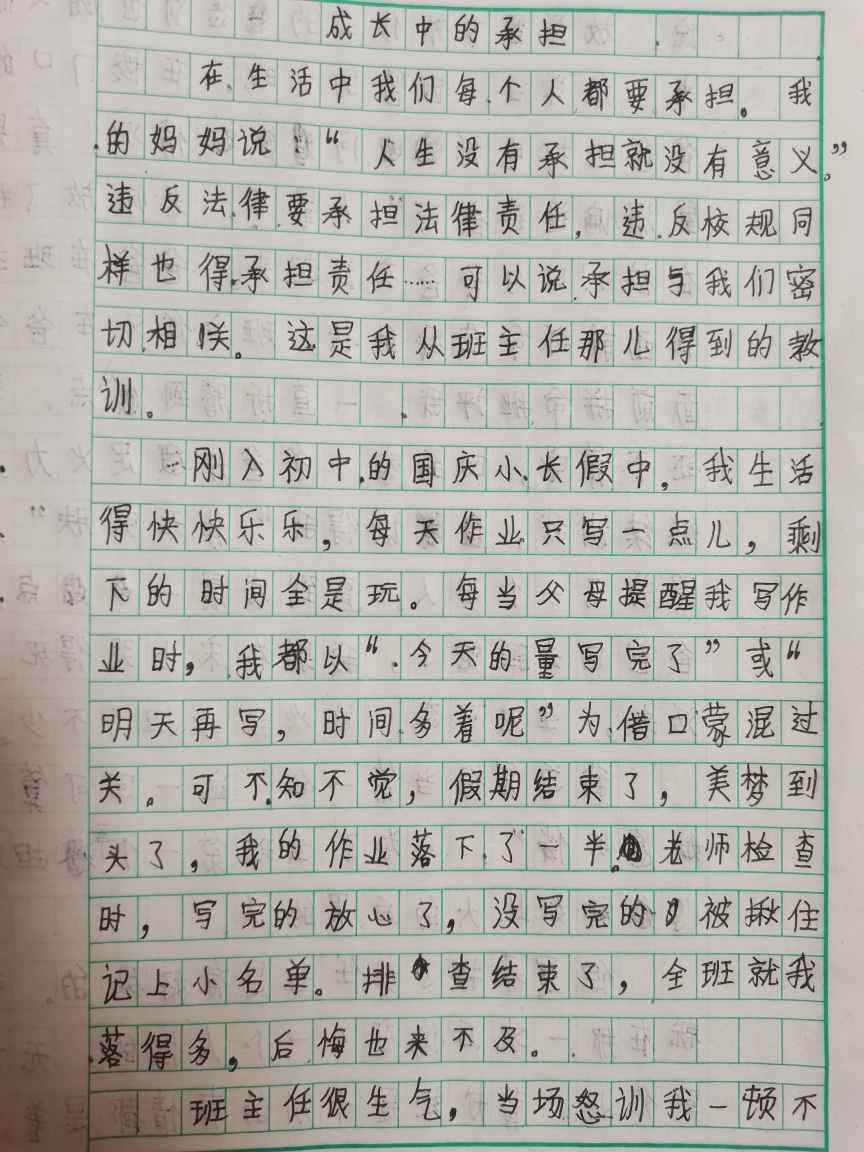 成长中的承担
在生活中我们每个人都要承担。我
的妈妈说:“人生没有承担就没有意义。”
违反法律要承担法律责任,违反校规同
样也得承担责任……可以说承担与我们密
切相关。这是我从班主任那儿得到的教
训。
刚入初中的国庆小长假中,我生活
得快快乐乐,每天作业只写一点儿,剩
下的时间全是玩。每当父母提醒我写作
业时,我都以“今天的量写完了”或“
明天再写,时间多着呢”为借口蒙混过
关。可不知不觉,假期结束了,美梦到
头了,我的作业落下了一半。老师检查
时,写完的放心了,没写完的被揪住
记上小名单。排查结束了,全班就我
落得多,后悔也来不及。
班主任很生气,当场怒训我一顿不